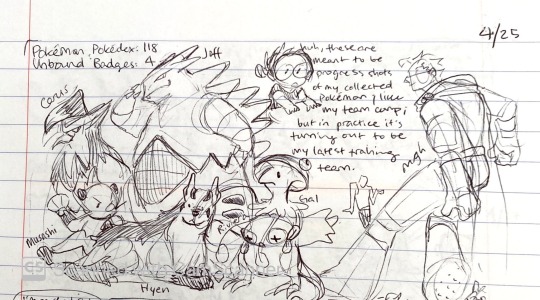 4/25
Pokémon Pokédex: 118
Unbound Badges: 4
Jaff
huh, these are
meant to be
progress shots
of my collected
Pokémon / like
my team comp;
but in practice it's
turning out to be
my latest training
team.
Corvus
mgh
Gal
Musashi
River
Hyen